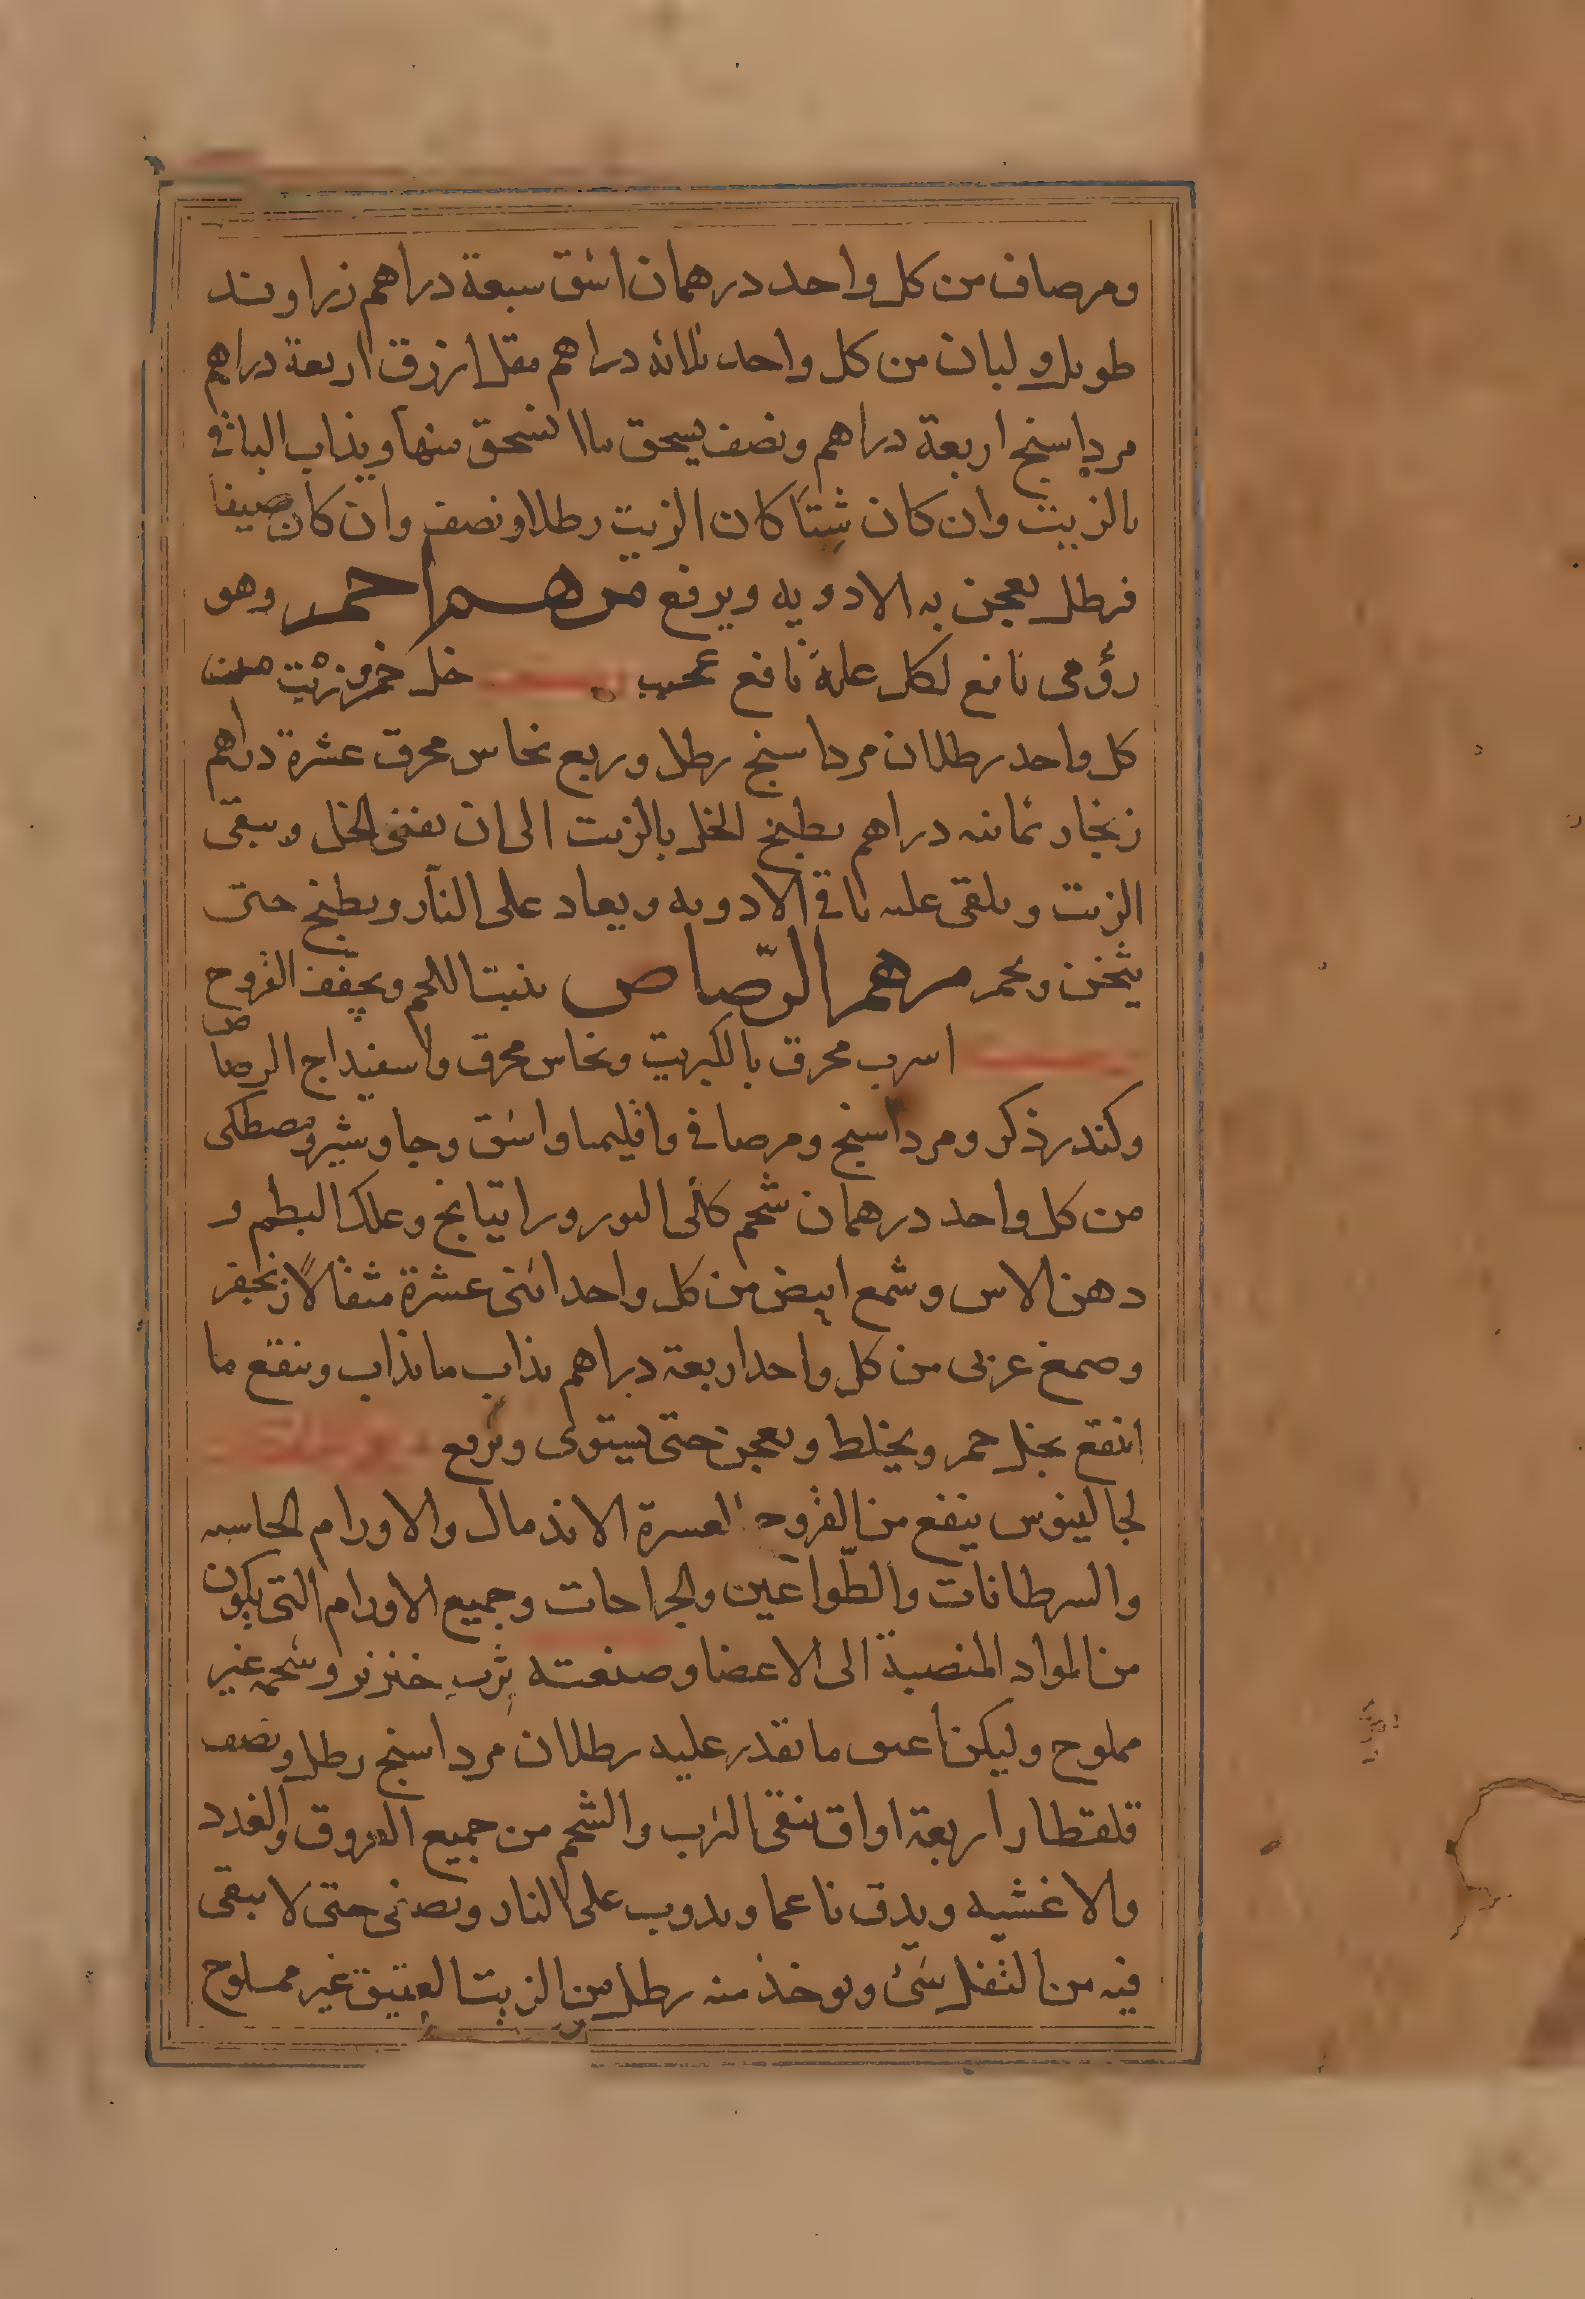 ومرصاف من كل واحد درهمان اشق سبعة دراهم زراوند
طويل ولبان من كل واحد ثلاثه دراهم مقل ازرق اربعة دراهم
مرداسنج اربعة دراهم ونصف يسحق ما انسحق منها ويذاب الباقى
بالزيت وان كان شتاً كان الزيت رطلا ونصف وان كان صيفا
فرطل يعجن به الادويه ويرفع مرهم احمر وهو
رؤمى نافع لكل علة نافع عجيب خل خمر وزيت من
كل واحد رطلان مرداسنج رطل وربع نحاس محرق عشرة دراهم
زنجار ثمانيه دراهم يطبخ الخل بالزيت الى ان يفنى الخل ويبقى
الزيت ويلقى عليه باقى الادويه ويعاد على النار ويطبخ حتى
يثخن ويحمر مرهم الرّصاص ينبت اللحم ويجفف القروح
اسرب محرق بالكبريت ونحاس محرق واسفيداج الرصاص
وكندر ذكر ومرداسنج ومرصافى واقليميا واشق وجاوشير ومصطكى
من كل واحد درهمان شحم كلى البور وراتيانج وعلك البطم و
دهن الاس وشمع ابيض من كل واحد اثنى عشرة مثقالاً زنجفر
وصمغ عربى من كل واحد اربعة دراهم يذاب ما يذاب وينقع ما
انتقع بخل خمر ويخلط ويعجن حتى يستوى ويرفع
لجالينوس ينفع من القروح العسرة الاندمال والاورام الجاسيه
والسرطانات والطّواعين والجراحات وجميع الاورام التى يكون
من المواد المنصبة الى الاعضا وصنعته ثرب خنزير وشحمه غير
مملوح وليكن اعتق ما تقدر عليه رطلان مرداسنج رطل ونصف
قلقطار اربعة اواق ينقى الثرب والشحم من جميع العروق والغدد
والاغشيه ويدق ناعما ويذوب على النار ويصفى حتى لا يبقى
فيه من الثفل شئ ويوخذ منه رطل من الزيت العتيق غير مملوح